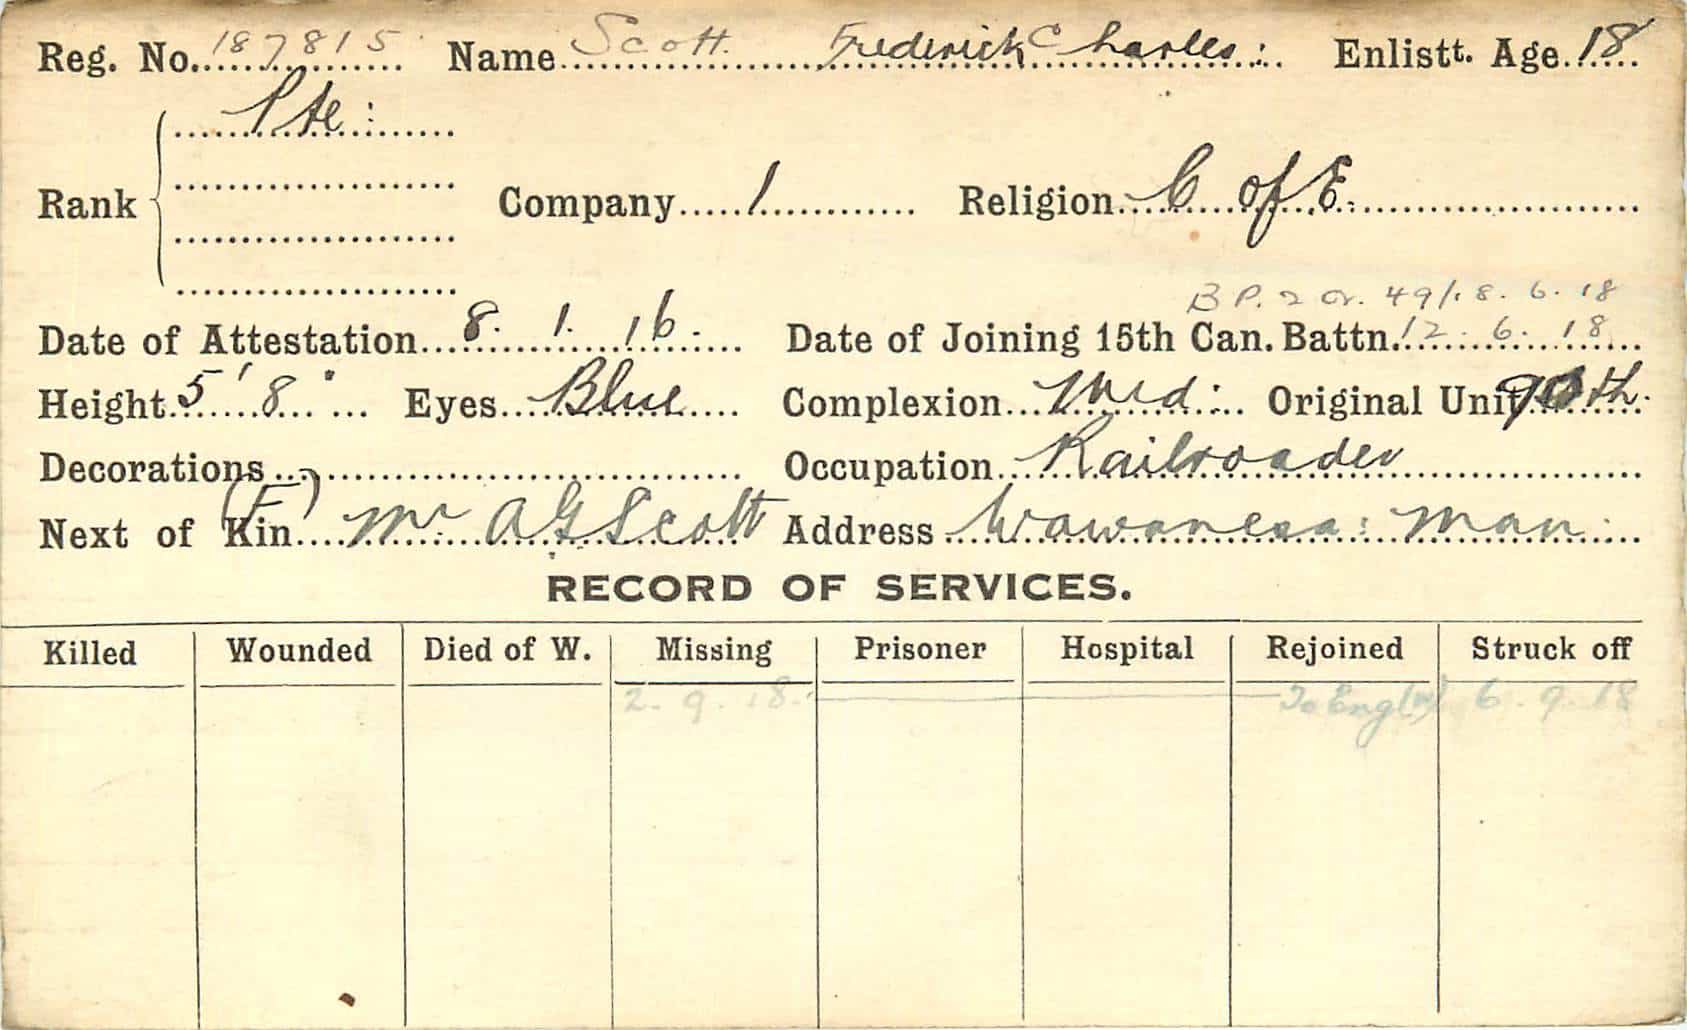 Reg. No. 187815 Name Scott. Frederick Charles: Enlistt. Age. 18
Pte:
Rank Company 1 Religion C of E.
B P. 2 Or. 49/18. 6. 18
Date of Attestation 8. 1. 16. Date of Joining 15th Can. Battn. 12. 6. 18
Height 5' 8" Eyes Blue Complexion Med: Original Unit 90th.
Decorations Occupation Railroader
(F)
Next of Kin Mr A G Scott Address Wawanesa: Man:
RECORD OF SERVICES.
Killed Wounded Died of W. Missing Prisoner Hospital Rejoined Struck off
2. 9. 18. To Eng (W) 6. 9. 18